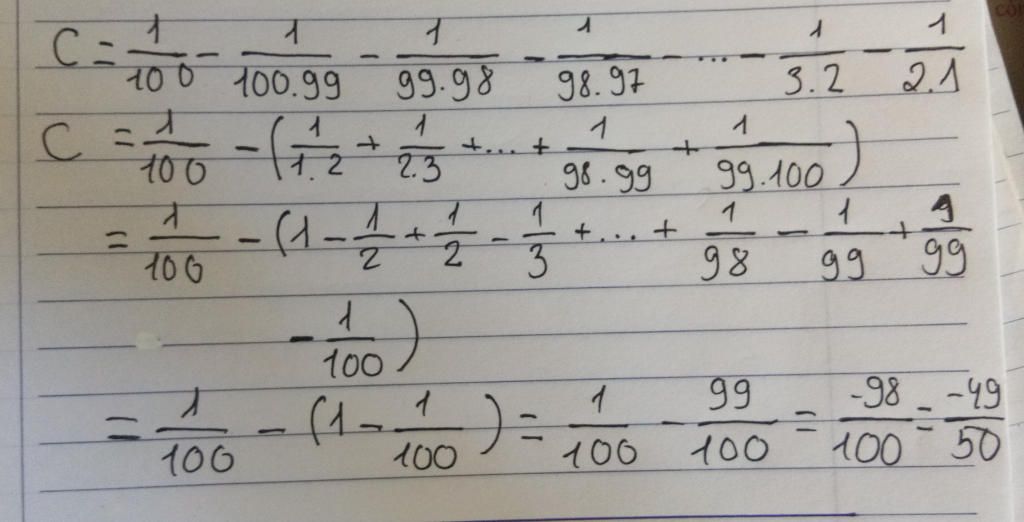 C = 1/100 - 1/100.99 - 1/99.98 - 1/98.97 - ... - 1/3.2 - 1/2.1
C = 1/100 - (1/1.2 + 1/2.3 + ... + 1/98.99 + 1/99.100)
= 1/100 - (1 - 1/2 + 1/2 - 1/3 + ... + 1/98 - 1/99 + 1/99
- 1/100)
= 1/100 - (1 - 1/100) = 1/100 - 99/100 = -98/100 = -49/50